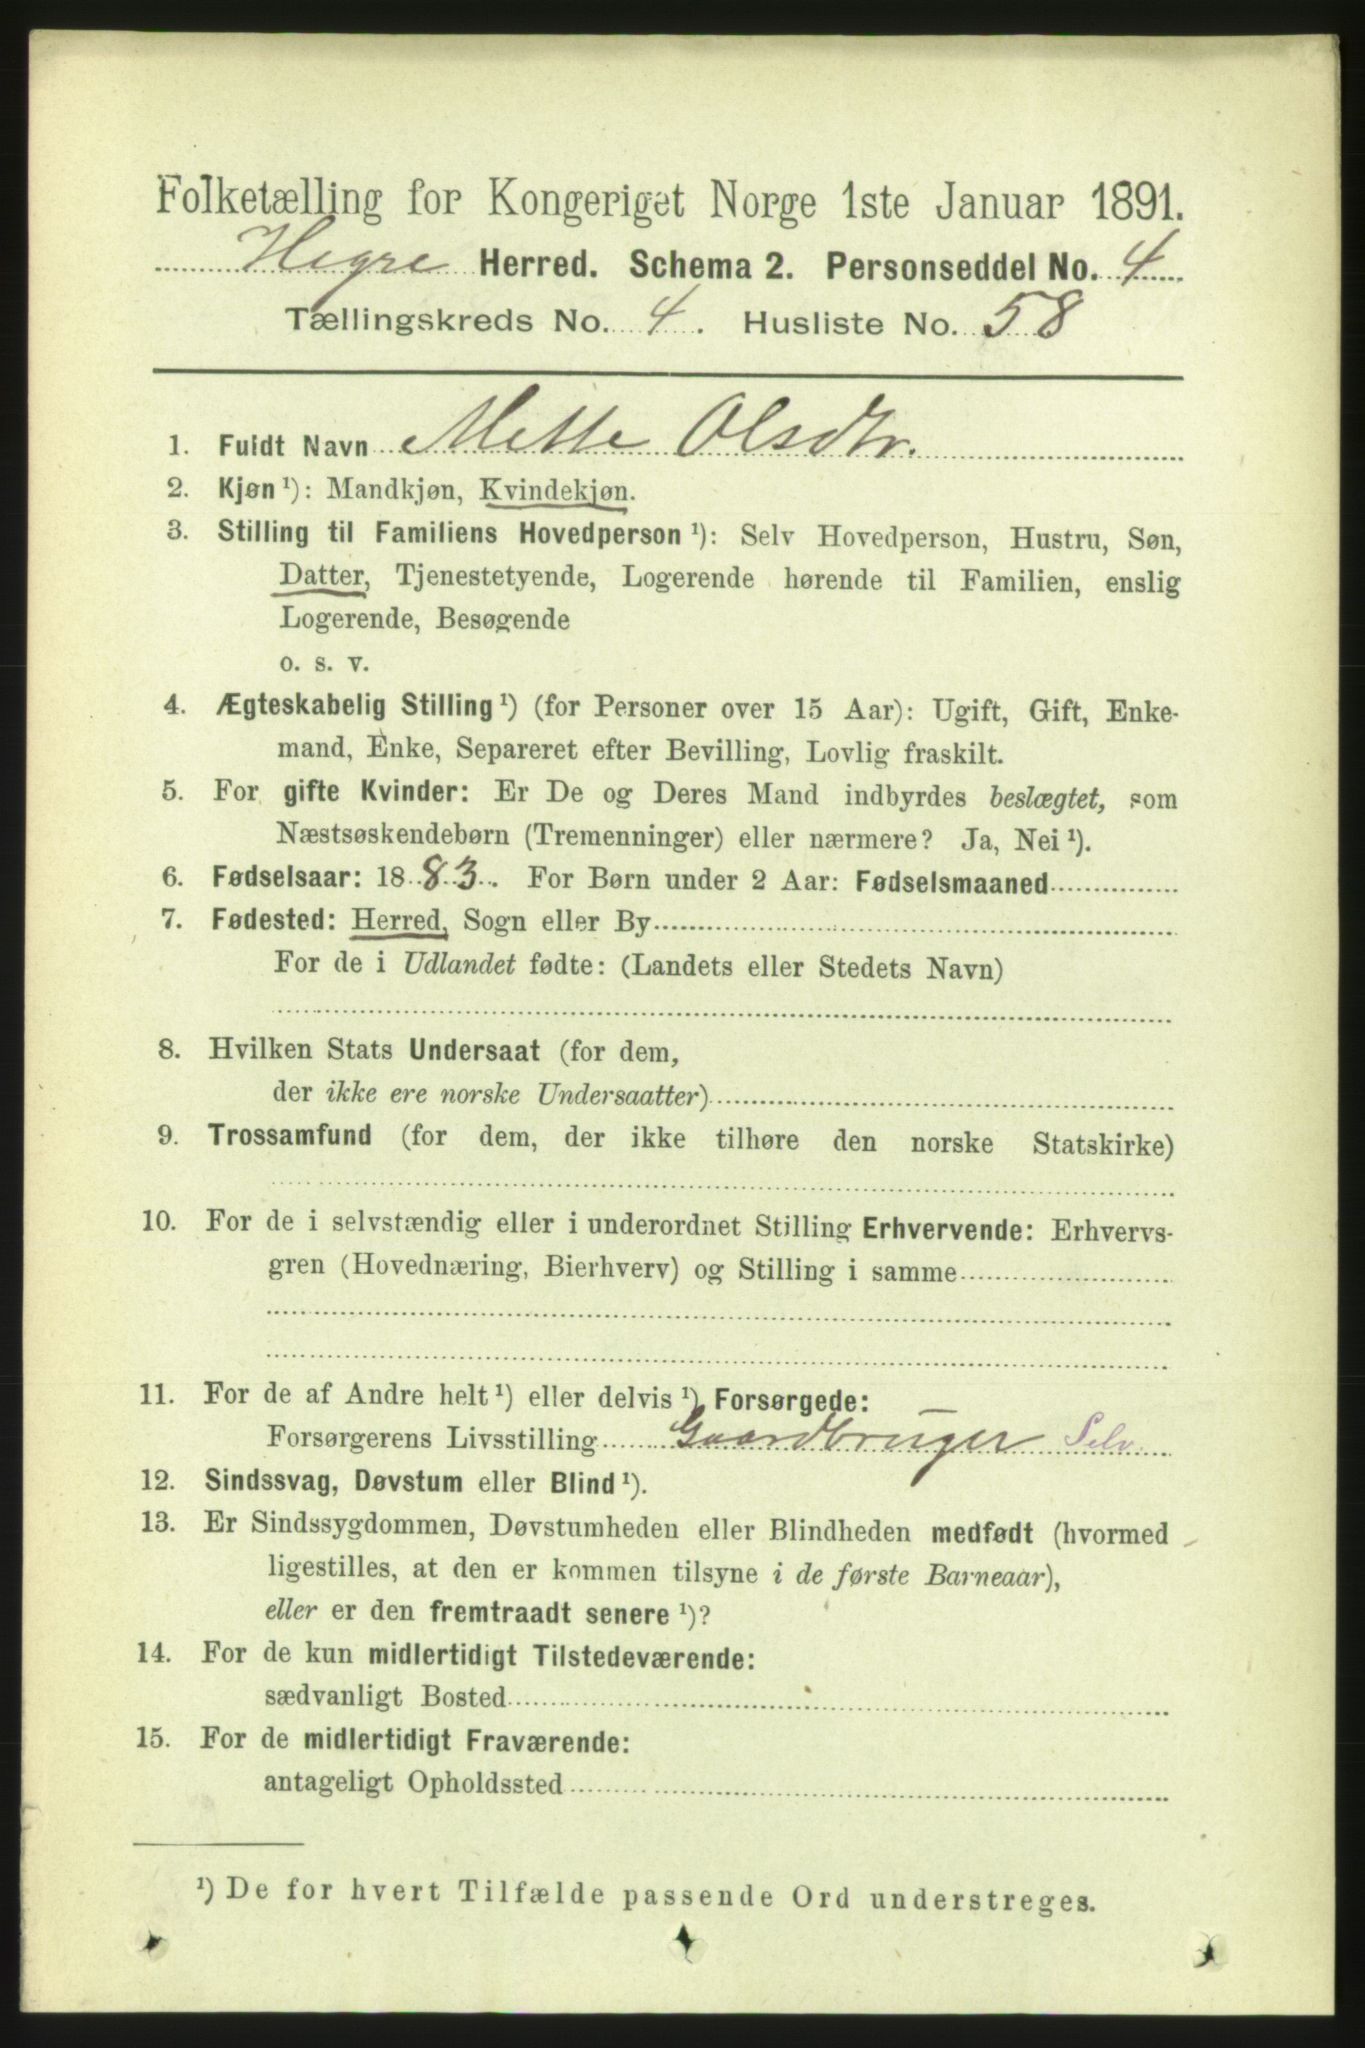 Folketælling for Kongeriget Norge 1ste Januar 1891.
Hegre Herred. Schema 2. Personseddel No. 4
Tællingskreds No. 4. Husliste No. 58
1. Fuldt Navn Mette Olsdtr.
2. Kjøn ¹): Mandkjøn, Kvindekjøn.
3. Stilling til Familiens Hovedperson ¹): Selv Hovedperson, Hustru, Søn,
Datter, Tjenestetyende, Logerende hørende til Familien, enslig
Logerende, Besøgende
o. s. v.
4. Ægteskabelig Stilling ¹) (for Personer over 15 Aar): Ugift, Gift, Enke-
mand, Enke, Separeret efter Bevilling, Lovlig fraskilt.
5. For gifte Kvinder: Er De og Deres Mand indbyrdes beslægtet, som
Næstsøskendebørn (Tremenninger) eller nærmere? Ja, Nei ¹).
6. Fødselsaar: 1883. For Børn under 2 Aar: Fødselsmaaned
7. Fødested: Herred, Sogn eller By
For de i Udlandet fødte: (Landets eller Stedets Navn)
8. Hvilken Stats Undersaat (for dem,
der ikke ere norske Undersaatter)
9. Trossamfund (for dem, der ikke tilhøre den norske Statskirke)
10. For de i selvstændig eller i underordnet Stilling Erhvervende: Erhvervs-
gren (Hovednæring, Bierhverv) og Stilling i samme
11. For de af Andre helt ¹) eller delvis ¹) Forsørgede:
Forsørgerens Livsstilling Gaardbruger Selv.
12. Sindssvag, Døvstum eller Blind ¹).
13. Er Sindssygdommen, Døvstumheden eller Blindheden medfødt (hvormed
ligestilles, at den er kommen tilsyne i de første Barneaar),
eller er den fremtraadt senere ¹)?
14. For de kun midlertidigt Tilstedeværende:
sædvanligt Bosted
15. For de midlertidigt Fraværende:
antageligt Opholdssted
¹) De for hvert Tilfælde passende Ord understreges.